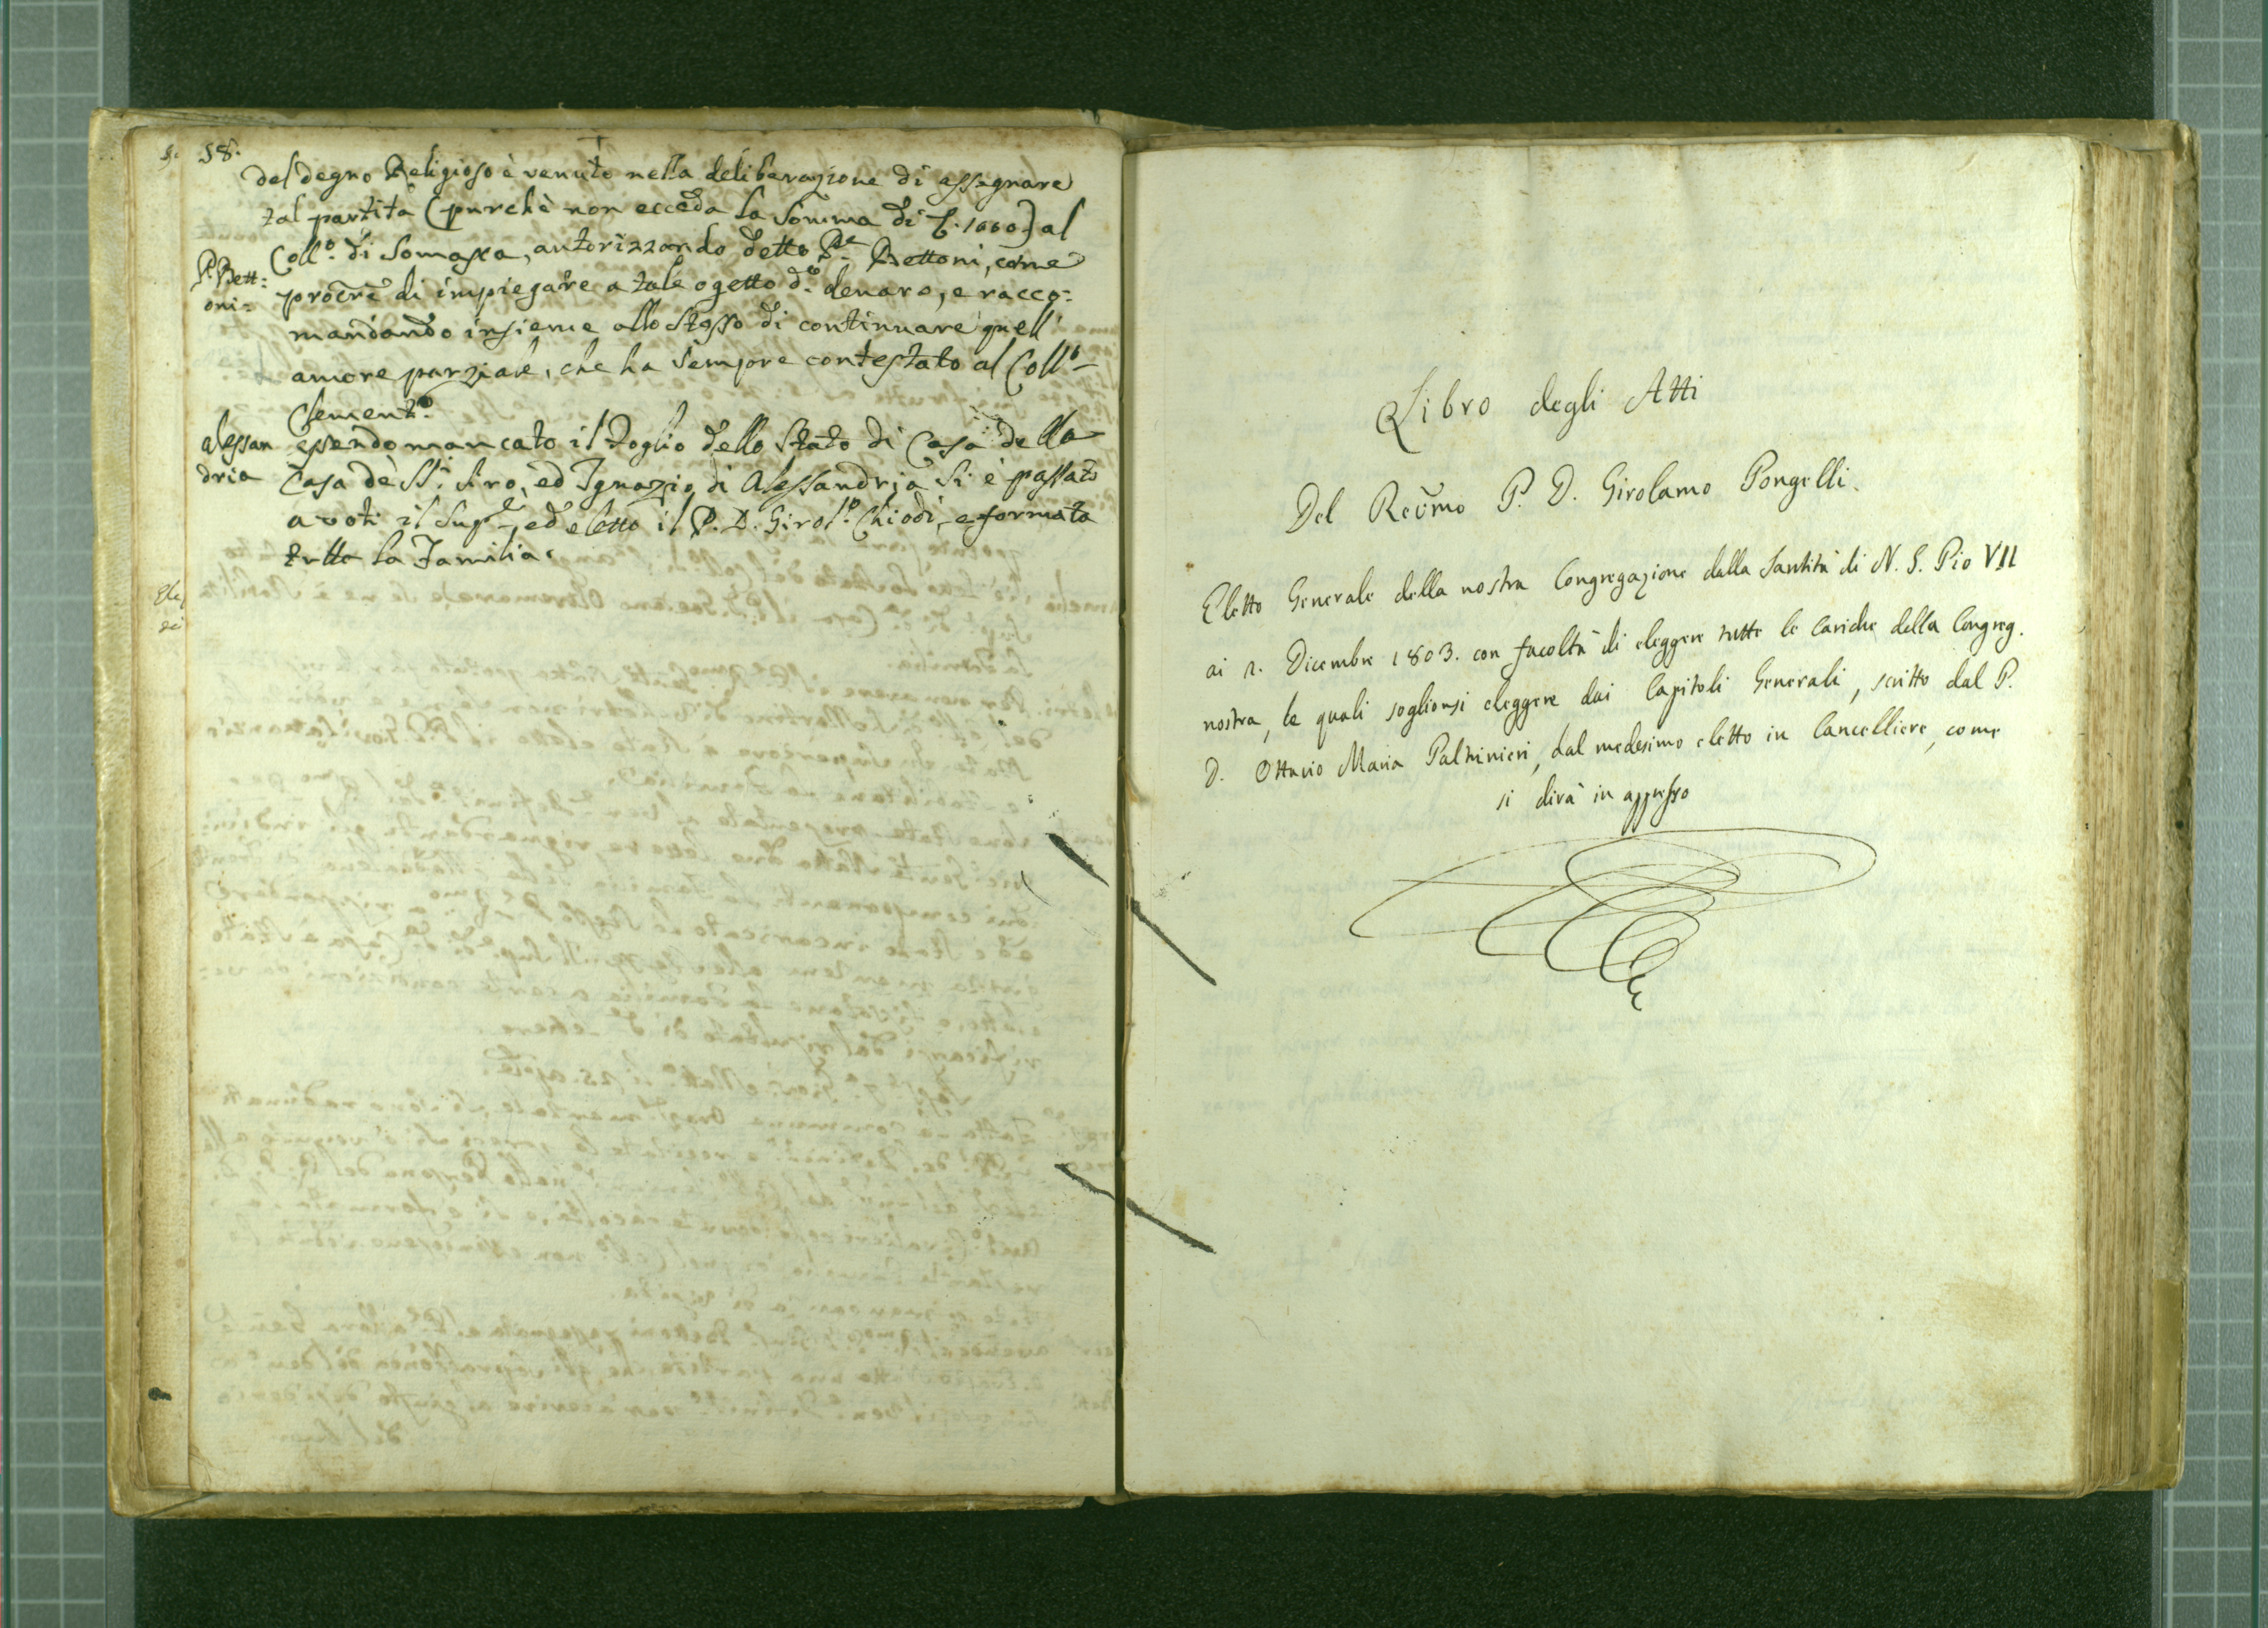 58.
del degno Religioso è venuto nella deliberazione di assegnare
tal partita (purchè non ecceda la Somma di L. 1000) al
Coll.º di Somasca, autorizzando detto P.re Bettoni, come
P. Bett:
oni=
procr̃e di impiegare a tale ogetto d.º denaro, e racco:
mandando insieme allo stesso di continuare quell'
amore parziale, che ha sempre contestato al Coll.º
Clement.º
alessan
dria
essendo mancato il Foglio dello Stato di Casa della
Casa de SS. Siro, ed Ignazio di Alessandria si è passato
a voti il Sup.re, ed eletto il P. D. Girol.º Chiodi, e formata
tutta la Familia.
Libro degli Atti
Del Rev̄mo P. D. Girolamo Pongelli.
Eletto Generale della nostra Congregazione dalla Santità di N. S. Pio VII
ai 2. Dicembre 1803. con facoltà di eleggere tutte le Cariche della Congreg.
nostra, le quali soglionsi eleggere dai Capitoli Generali, scritto dal P.
D. Ottavio Maria Paltrinieri, dal medesimo eletto in Cancelliere, come
si dirà in appresso